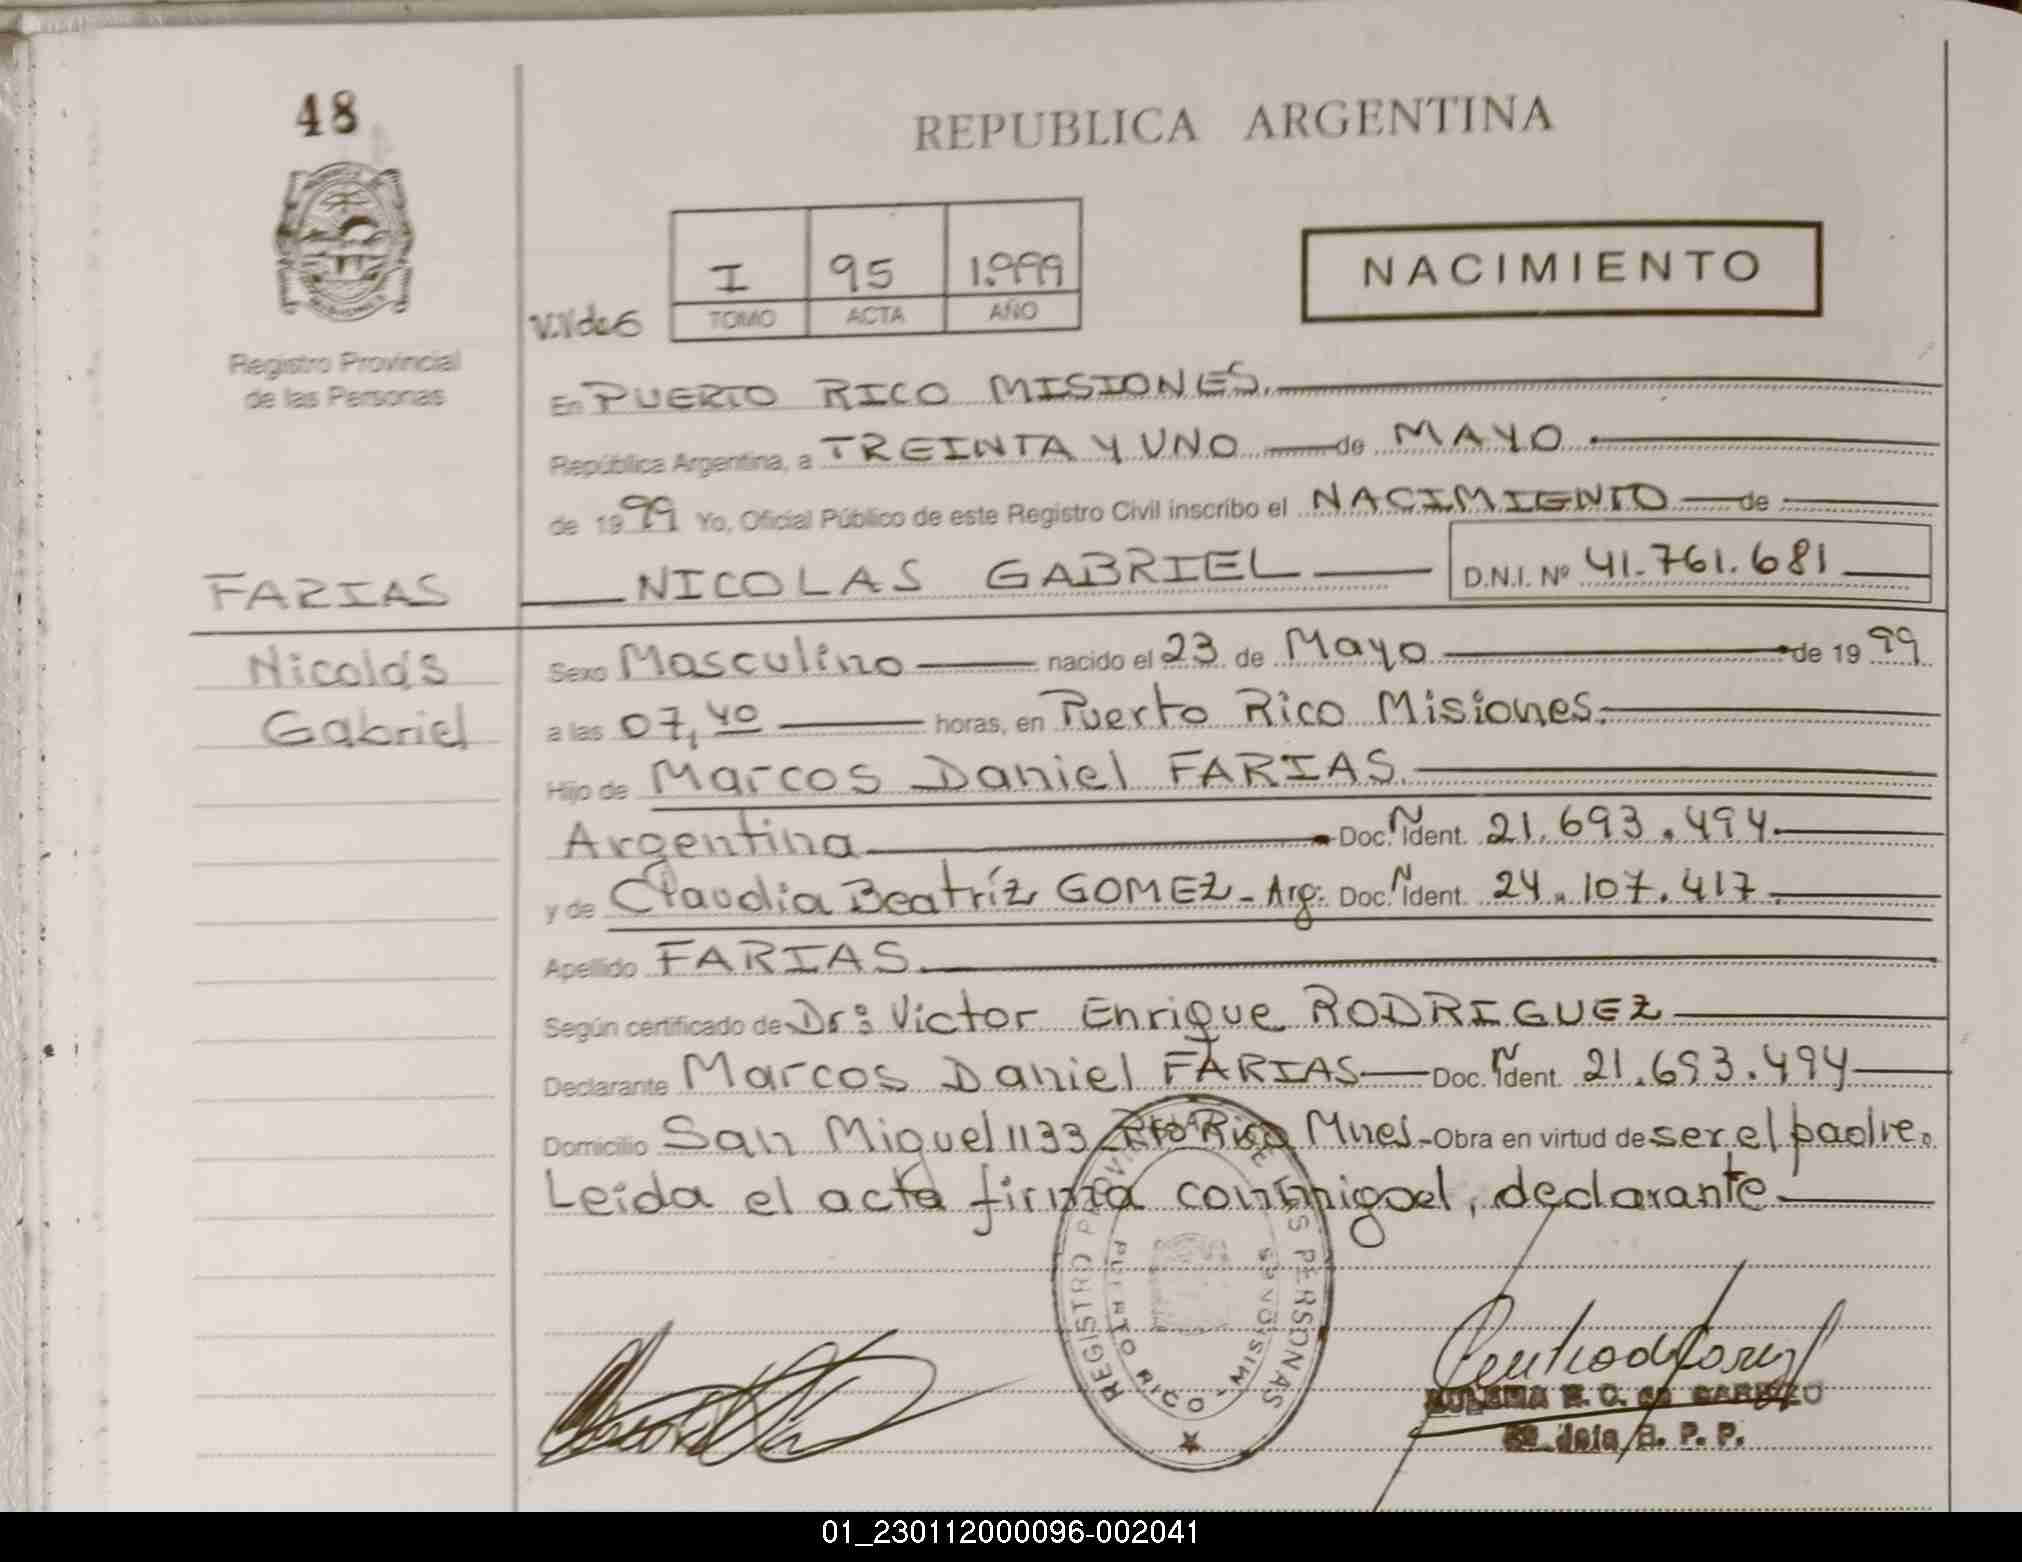 48
REPUBLICA ARGENTINA
I 95 1.999
TOMO ACTA AÑO
NACIMIENTO
Registro Provincial
de las Personas
En PUERTO RICO MISIONES.
República Argentina, a TREINTA Y UNO de MAYO
de 1999 Yo, Oficial Público de este Registro Civil inscribo el NACIMIENTO de
FARIAS NICOLAS GABRIEL D.N.I. Nº 41.761.681
Nicolás
Gabriel
Sexo Masculino nacido el 23 de Mayo de 1999
a las 07,40 horas, en Puerto Rico Misiones.
Hijo de Marcos Daniel FARIAS.
Argentina Doc. Ident. 21.693.494.
y de Claudia Beatríz GOMEZ - Arg. Doc. Ident. 24.107.417.
Apellido FARIAS.
Según certificado de Dr: Victor Enrique RODRIGUEZ
Declarante Marcos Daniel FARIAS Doc. Ident. 21.693.494
Domicilio San Miguel 1133 Pto Rico Mnes - Obra en virtud de ser el padre.
Leida el acta firma conmigo el, declarante
REGISTRO PROVINCIAL DE LAS PERSONAS
PUERTO RICO - MISIONES
01_230112000096-002041